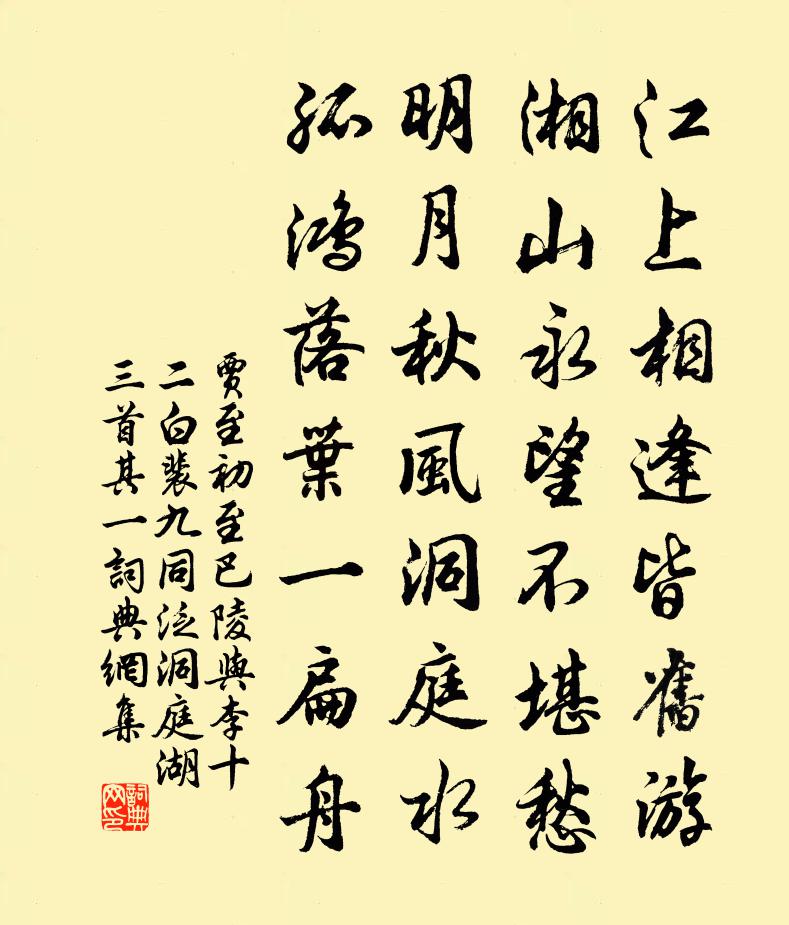 江上相逢皆舊游
湘山永望不堪愁
明月秋風洞庭水
孤鴻落葉一扁舟
賈至初至巴陵與李十
二白裴九同泛洞庭湖
三首其一詞典網集
詞典网印